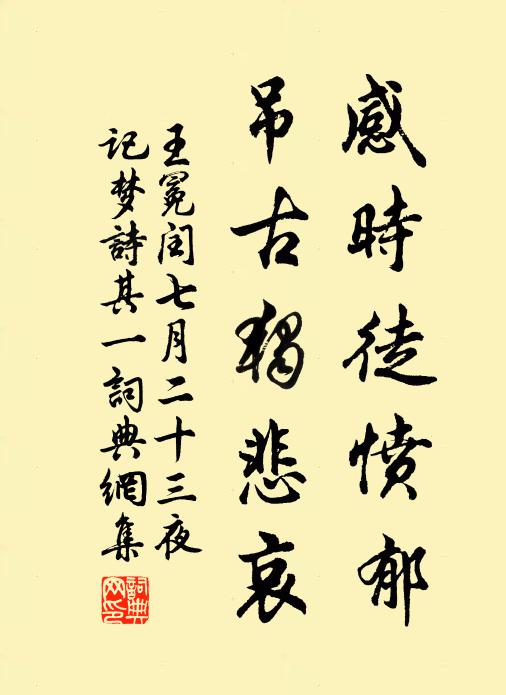 感時徒憤郁
吊古独悲哀
王冕闰七月二十三夜
记梦詩其一詞典網集
詞典網印